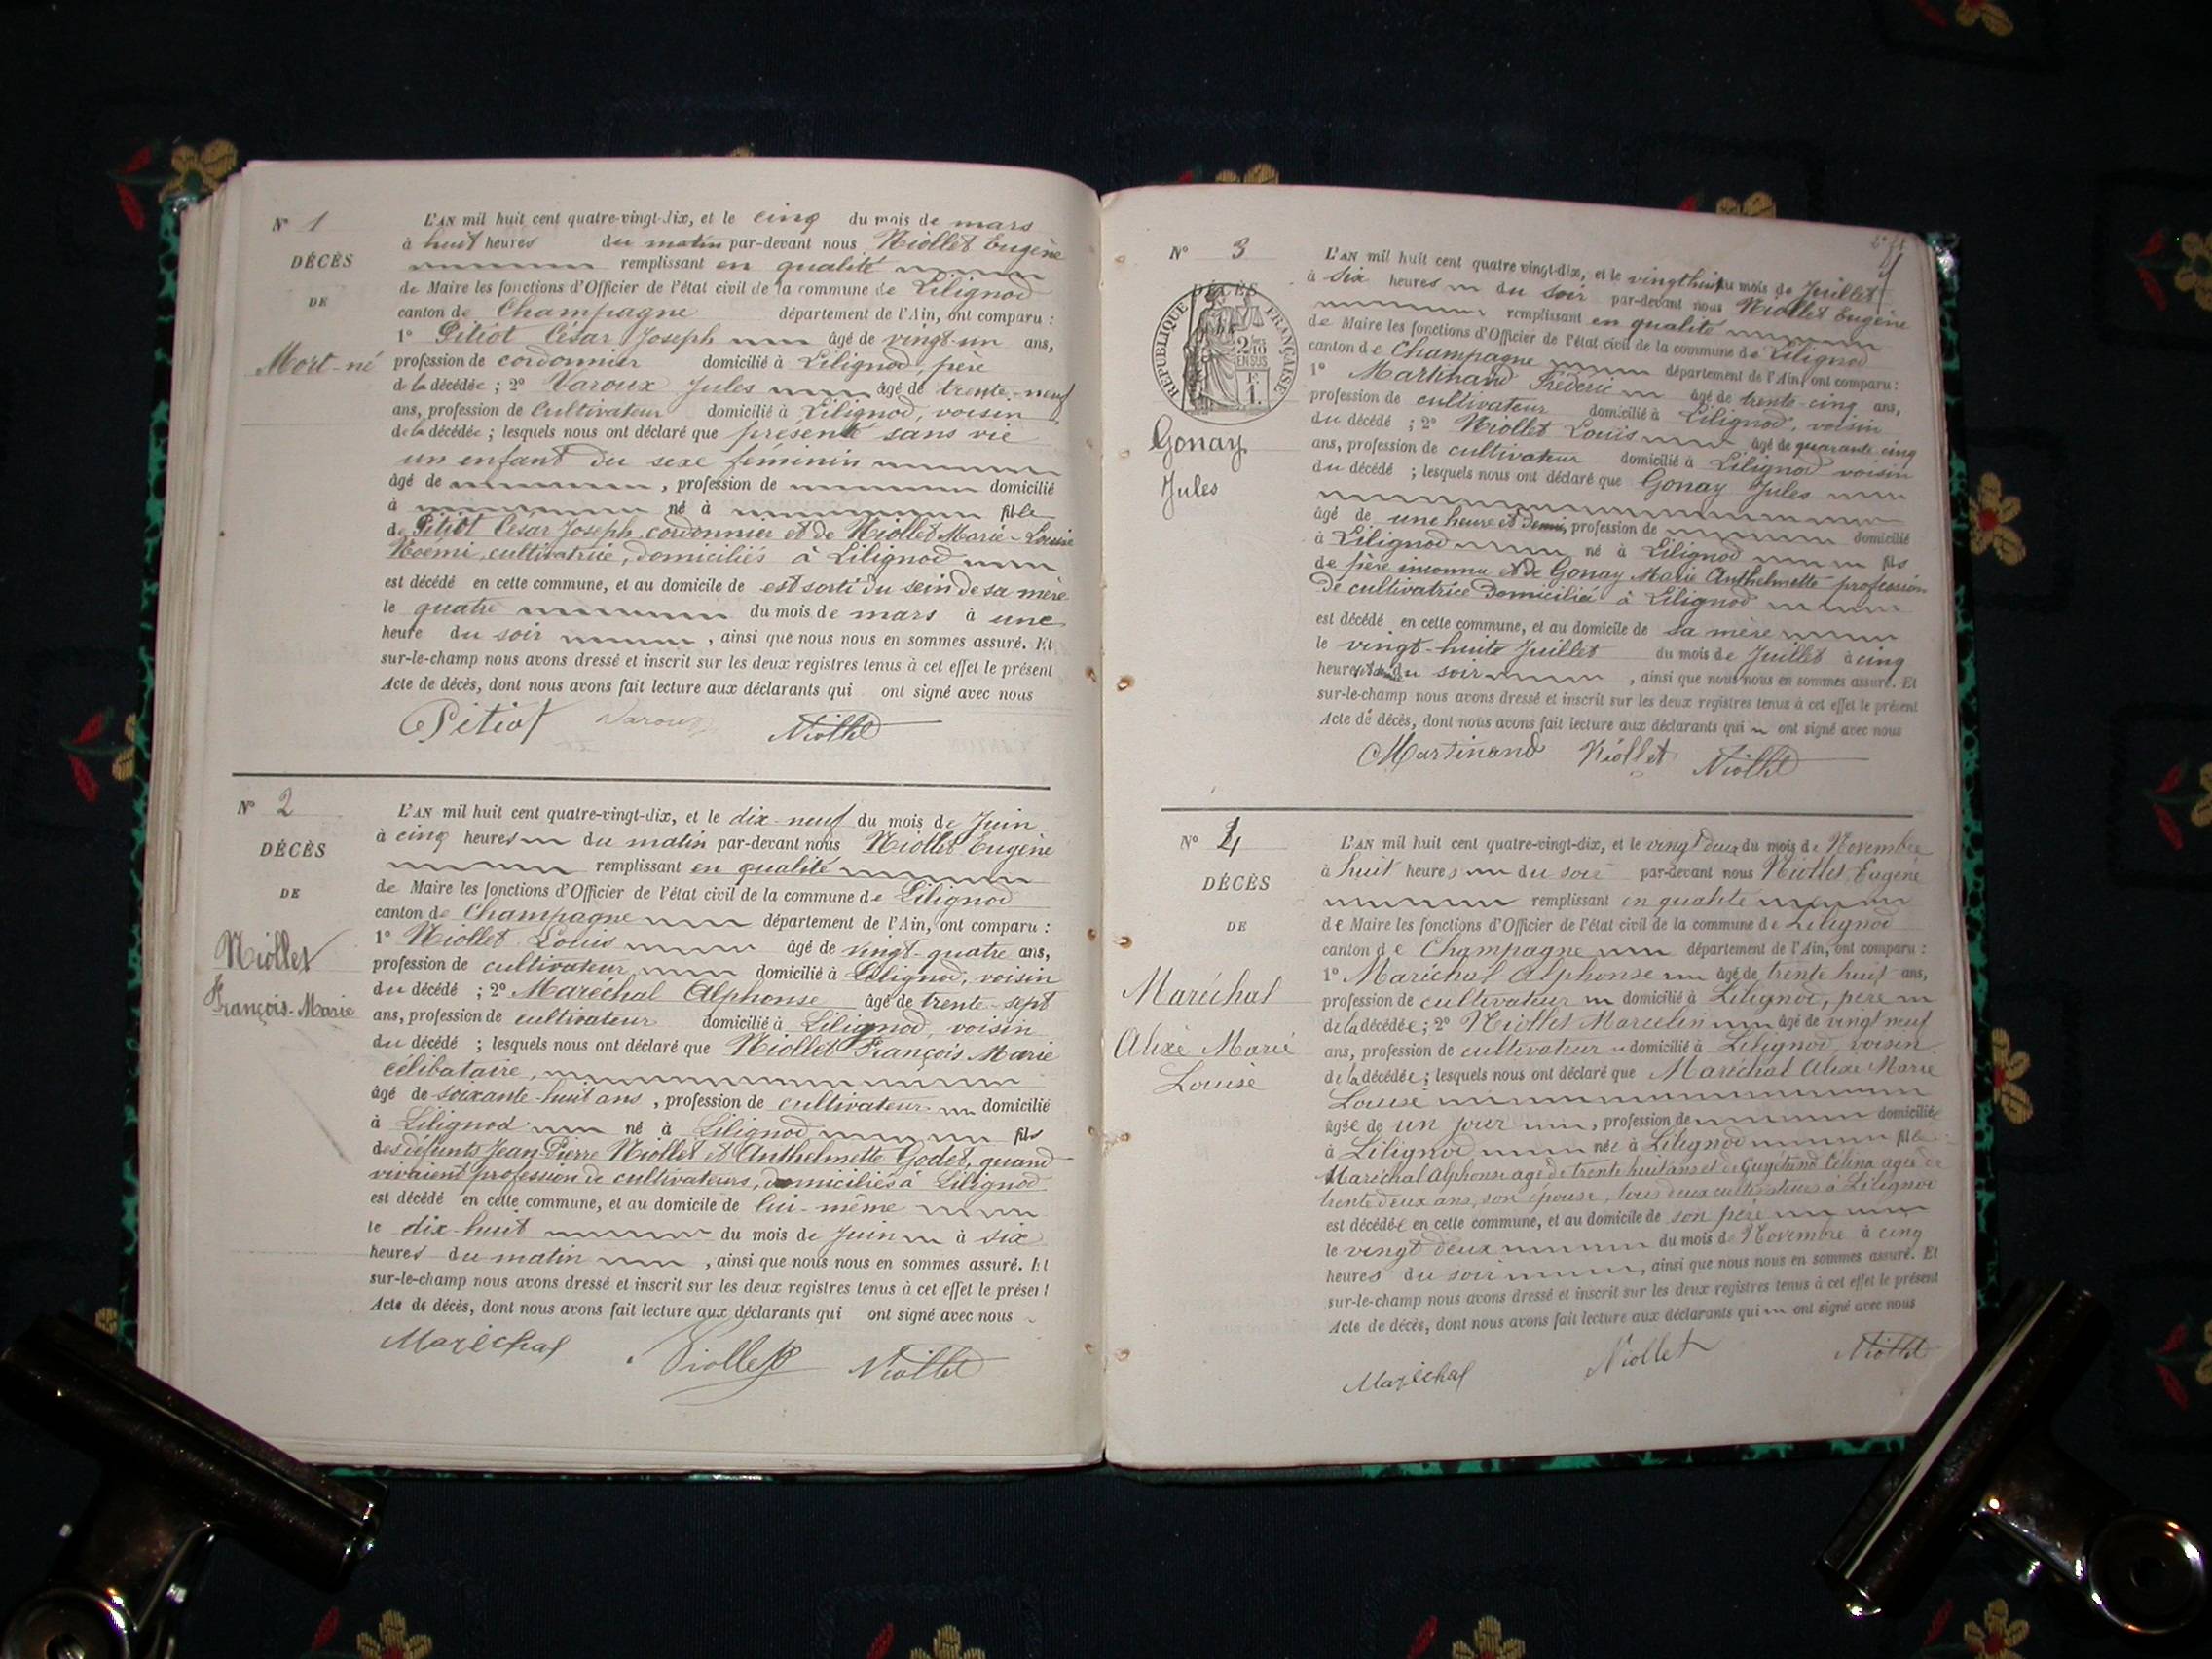 N° 1
DÉCÈS
DE
Mort-né
L'AN mil huit cent quatre-vingt-dix, et le cinq du mois de mars
à huit heures du matin par-devant nous Niollet Eugène
remplissant en qualité
de Maire les fonctions d'Officier de l'état civil de la commune de Lilignod
canton de Champagne département de l'Ain, ont comparu :
1° Pitiot César Joseph âgé de vingt-un ans,
profession de cordonnier domicilié à Lilignod, père
de la décédée ; 2° Varoux Jules âgé de trente-neuf
ans, profession de Cultivateur domicilié à Lilignod, voisin
de la décédée ; lesquels nous ont déclaré que présenté sans vie
un enfant du sexe féminin
âgé de , profession de domicilié
à né à fille
de Pitiot César Joseph, cordonnier et de Niollet Marie-Louise
Noémi, cultivatrice, domiciliés à Lilignod
est décédé en cette commune, et au domicile de est sorti du sein de sa mère
le quatre du mois de mars à une
heure du soir , ainsi que nous nous en sommes assuré. Et
sur-le-champ nous avons dressé et inscrit sur les deux registres tenus à cet effet le présent
Acte de décès, dont nous avons fait lecture aux déclarants qui ont signé avec nous
Pitiot Varoux Niollet
N° 2
DÉCÈS
DE
Niollet
François-Marie
L'AN mil huit cent quatre-vingt-dix, et le dix-neuf du mois de Juin
à cinq heures du matin par-devant nous Niollet Eugène
remplissant en qualité
de Maire les fonctions d'Officier de l'état civil de la commune de Lilignod
canton de Champagne département de l'Ain, ont comparu :
1° Niollet Louis âgé de vingt-quatre ans,
profession de cultivateur domicilié à Lilignod, voisin
du décédé ; 2° Maréchal Alphonse âgé de trente-sept
ans, profession de cultivateur domicilié à Lilignod, voisin
du décédé ; lesquels nous ont déclaré que Niollet François Marie
célibataire,
âgé de soixante-huit ans , profession de cultivateur domicilié
à Lilignod né à Lilignod fils
des défunts Jean-Pierre Niollet et Anthelmette Godet, quand
vivaient profession de cultivateurs, domiciliés à Lilignod
est décédé en cette commune, et au domicile de lui-même
le dix-huit du mois de Juin à six
heures du matin , ainsi que nous nous en sommes assuré. Et
sur-le-champ nous avons dressé et inscrit sur les deux registres tenus à cet effet le présent
Acte de décès, dont nous avons fait lecture aux déclarants qui ont signé avec nous
Maréchal Niollet Niollet
N° 3
DÉCÈS
RÉPUBLIQUE FRANÇAISE
2/10
EN SUS
F.
1.
Gonay
Jules
L'AN mil huit cent quatre vingt-dix, et le vingt huit du mois de Juillet
à six heures du soir par-devant nous Niollet Eugène
remplissant en qualité
de Maire les fonctions d'Officier de l'état civil de la commune de Lilignod
canton de Champagne département de l'Ain, ont comparu :
1° Martinand Fréderic âgé de trente-cinq ans,
profession de cultivateur domicilié à Lilignod, voisin
du décédé ; 2° Niollet Louis âgé de quarante cinq
ans, profession de cultivateur domicilié à Lilignod voisin
du décédé ; lesquels nous ont déclaré que Gonay Jules
âgé de une heure et demi, profession de domicilié
à Lilignod né à Lilignod fils
de père inconnu et de Gonay Marie Anthelmette profession
de cultivatrice domiciliée à Lilignod
est décédé en cette commune, et au domicile de sa mère
le vingt-huit Juillet du mois de Juillet à cinq
heures et demi du soir , ainsi que nous nous en sommes assuré. Et
sur-le-champ nous avons dressé et inscrit sur les deux registres tenus à cet effet le présent
Acte de décès, dont nous avons fait lecture aux déclarants qui ont signé avec nous
Martinand Niollet Niollet
N° 4
DÉCÈS
DE
Maréchal
Alixe Marie
Louise
L'AN mil huit cent quatre-vingt-dix, et le vingt deux du mois de Novembre
à huit heures du soir par-devant nous Niollet Eugène
remplissant en qualité
de Maire les fonctions d'Officier de l'état civil de la commune de Lilignod
canton de Champagne département de l'Ain, ont comparu :
1° Maréchal Alphonse âgé de trente huit ans,
profession de cultivateur domicilié à Lilignod, père
de la décédée ; 2° Niollet Marcelin âgé de vingt neuf
ans, profession de cultivateur domicilié à Lilignod, voisin
de la décédée ; lesquels nous ont déclaré que Maréchal Alixe Marie
Louise
âgée de un jour , profession de domiciliée
à Lilignod née à Lilignod fille
Maréchal Alphonse agé de trente huit ans et de Célina agée de
trente deux ans, son épouse, tous deux cultivateurs à Lilignod
est décédée en cette commune, et au domicile de son père
le vingt deux du mois de Novembre à cinq
heures du soir , ainsi que nous nous en sommes assuré. Et
sur-le-champ nous avons dressé et inscrit sur les deux registres tenus à cet effet le présent
Acte de décès, dont nous avons fait lecture aux déclarants qui ont signé avec nous
Maréchal Niollet Niollet